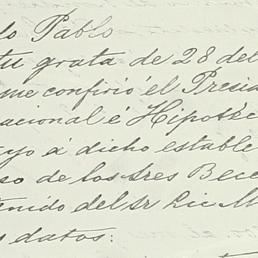 do Pablo
tu grata de 28 del
me confirió el Presid
acional é Hipotéc
yo á dicho estable
so de los tres Bece
tenido del Sr Lic M
s datos: